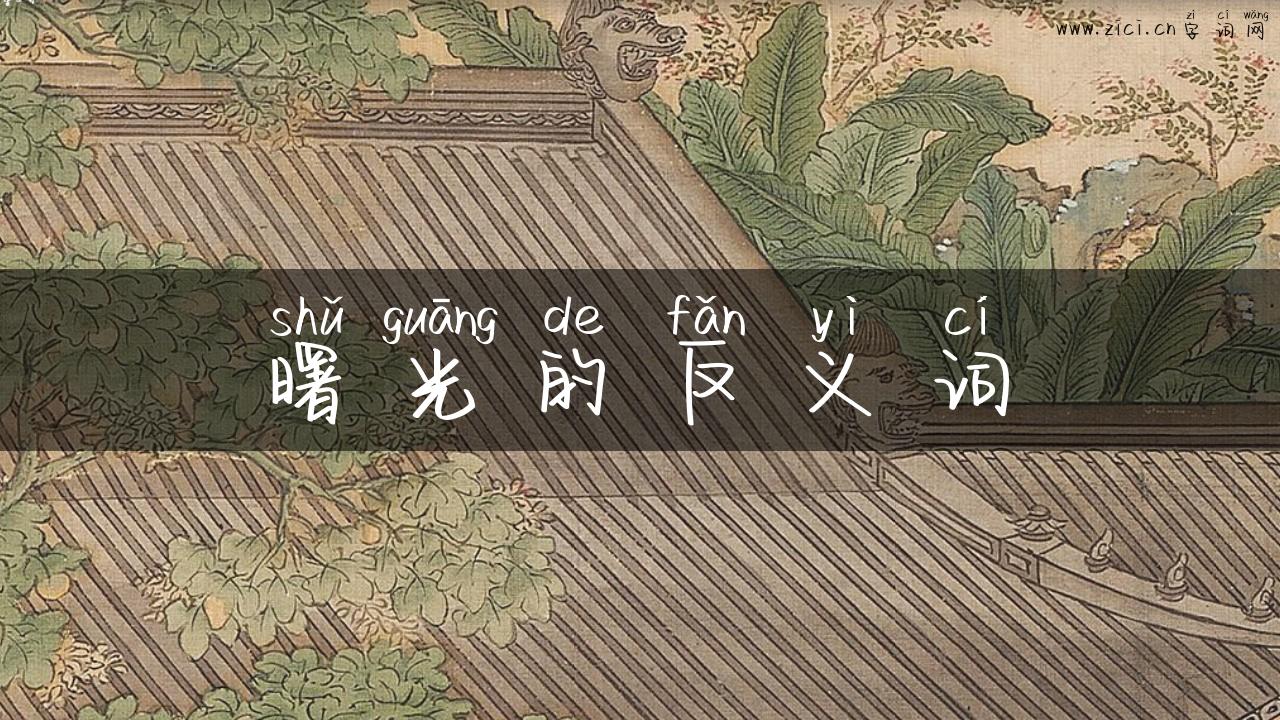 zì cí wǎng
www.zici.cn 字词网
shǔ guāng de fǎn yì cí
曙光的反义词